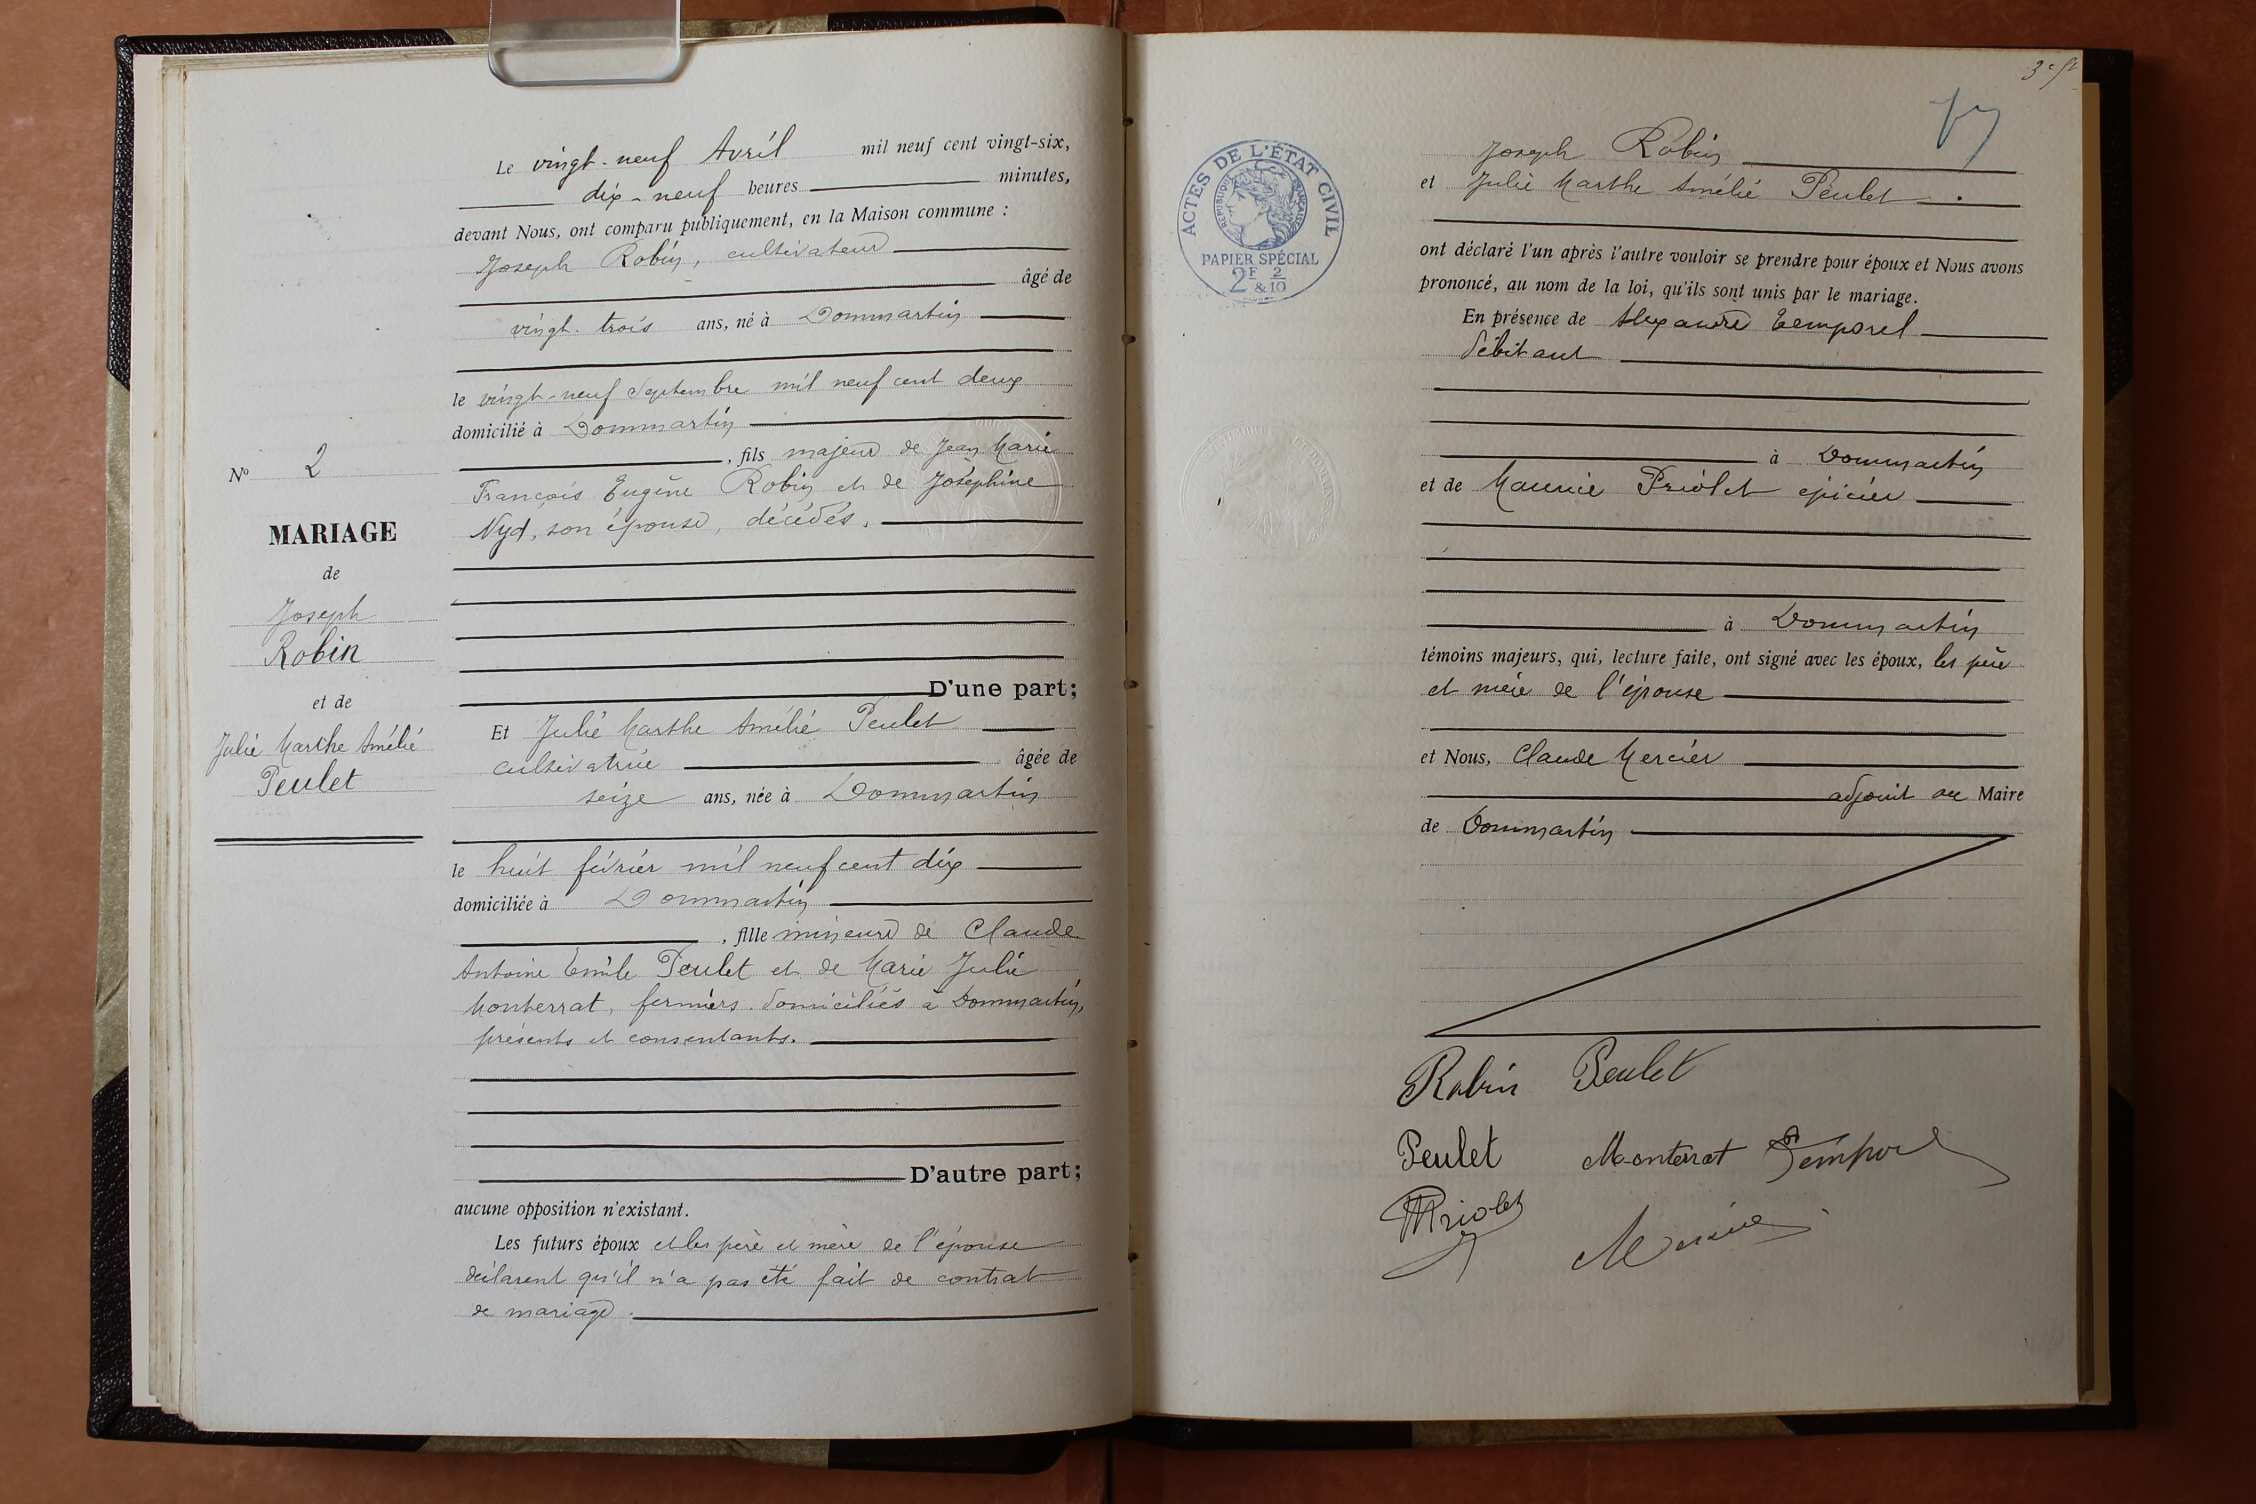 Le vingt-neuf Avril mil neuf cent vingt-six,
dix-neuf heures minutes,
devant Nous, ont comparu publiquement, en la Maison commune :
Joseph Robin, cultivateur
âgé de
vingt-trois ans, né à Dommartin
le vingt-neuf Septembre mil neuf cent deux
domicilié à Dommartin
, fils majeur de Jean Marie
François Eugène Robin et de Joséphine
Nyd, son épouse, décédés.
D'une part;
Et Julie Marthe Amélie Peulet
cultivatrice âgée de
seize ans, née à Dommartin
le huit février mil neuf cent dix
domiciliée à Dommartin
, fille mineure de Claude
Antoine Emile Peulet et de Marie Julie
Monterrat, fermiers domiciliés à Dommartin,
présents et consentants.
D'autre part;
aucune opposition n'existant.
Les futurs époux et les père et mère de l'épouse
déclarent qu'il n'a pas été fait de contrat
de mariage.
No 2
MARIAGE
de
Joseph
Robin
et de
Julie Marthe Amélie
Peulet
ACTES DE L'ÉTAT CIVIL
RÉPUBLIQUE FRANÇAISE
PAPIER SPÉCIAL
2F & 2/10
Joseph Robin
et Julie Marthe Amélie Peulet
ont déclaré l'un après l'autre vouloir se prendre pour époux et Nous avons
prononcé, au nom de la loi, qu'ils sont unis par le mariage.
En présence de Alexandre Temporel
débitant
à Dommartin
et de Maurice Priolet épicier
à Dommartin
témoins majeurs, qui, lecture faite, ont signé avec les époux, les père
et mère de l'épouse
et Nous, Claude Mercier
adjoint au Maire
de Dommartin
Robin Peulet
Peulet Monterrat Temporel
Priolet
Mercier